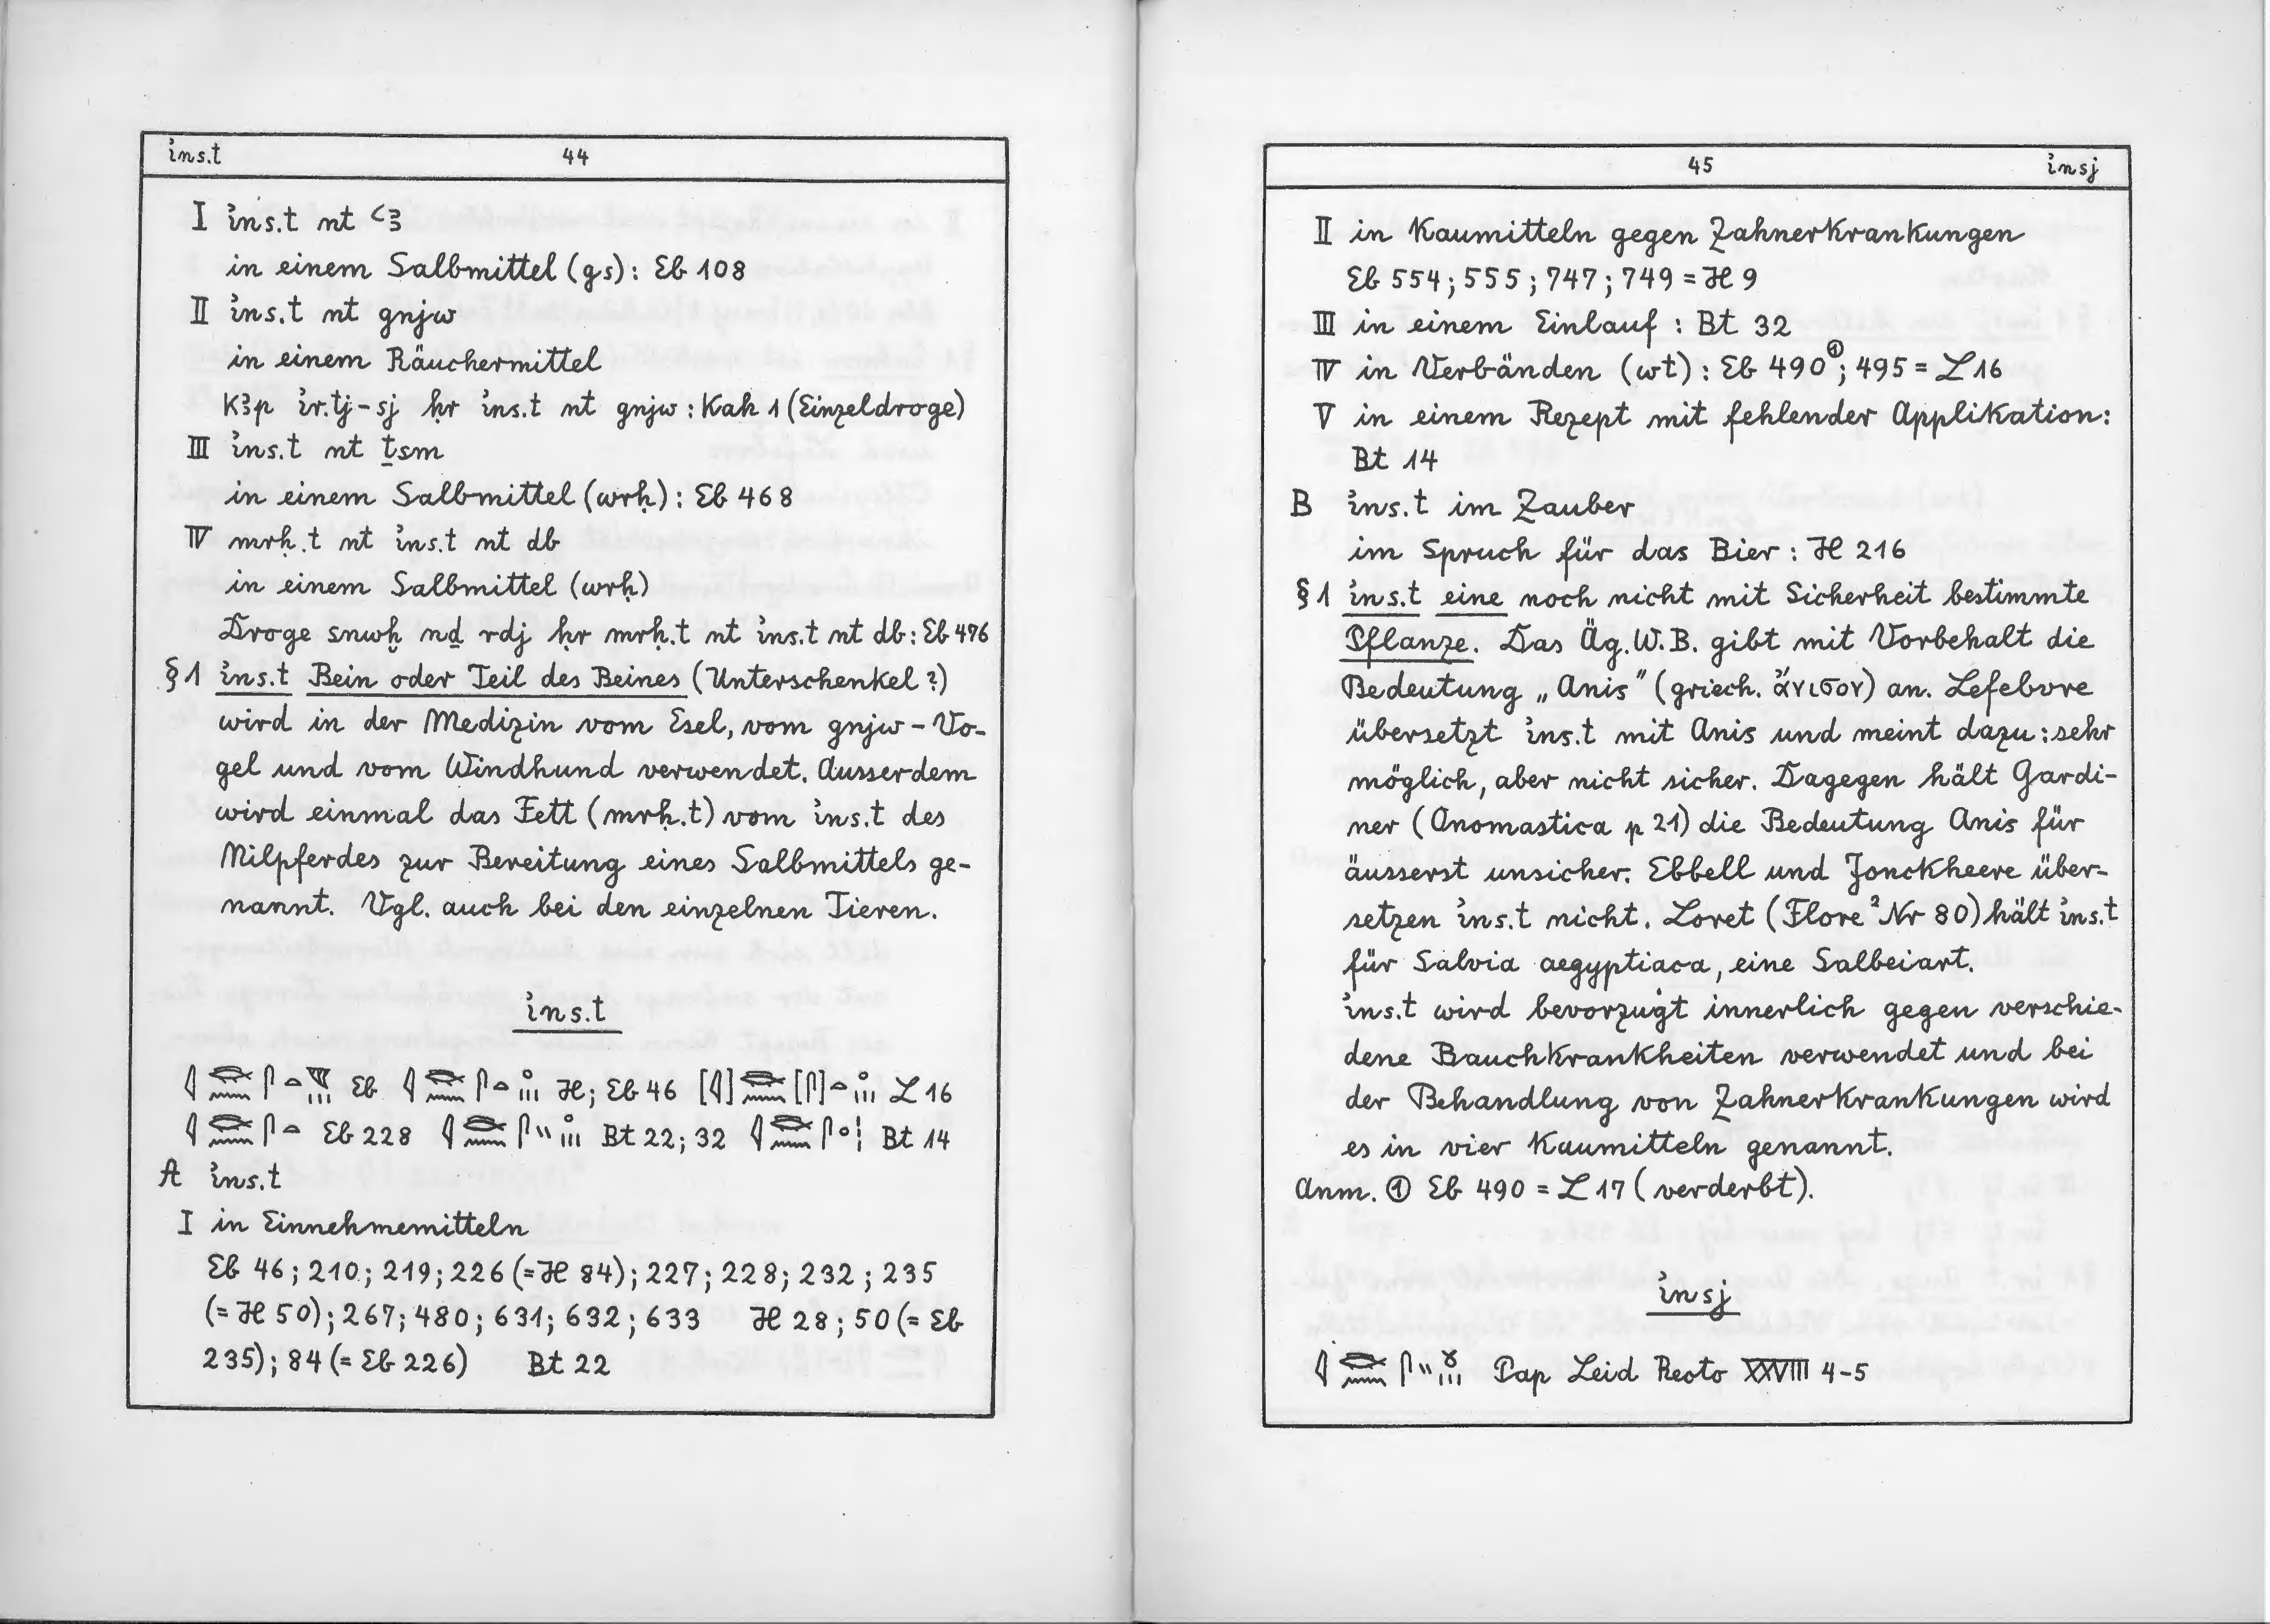 ỉns.t 44
I ỉns.t nt ꜥꜣ
in einem Salbmittel (gs): Eb 108
II ỉns.t nt gnjw
in einem Räuchermittel
kꜣp ỉr.tj-sj ḥr ỉns.t nt gnjw: Kah 1 (Einzeldroge)
III ỉns.t nt ṯsm
in einem Salbmittel (wrḥ): Eb 468
IV mrḥ.t nt ỉns.t nt db
in einem Salbmittel (wrḥ)
Droge snwḫ nḏ rdj ḥr mrḥ.t nt ỉns.t nt db: Eb 476
§1 ỉns.t Bein oder Teil des Beines (Unterschenkel?)
wird in der Medizin vom Esel, vom gnjw-Vo-
gel und vom Windhund verwendet. Ausserdem
wird einmal das Fett (mrḥ.t) vom ỉns.t des
Nilpferdes zur Bereitung eines Salbmittels ge-
nannt. Vgl. auch bei den einzelnen Tieren.
ỉns.t
Eb H; Eb 46 L 16
Eb 228 Bt 22; 32 Bt 14
A ỉns.t
I in Einnehmemitteln
Eb 46; 210; 219; 226 (=H 84); 227; 228; 232; 235
(=H 50); 267; 480; 631; 632; 633 H 28; 50 (= Eb
235); 84 (= Eb 226) Bt 22
45 ỉnsj
II in Kaumitteln gegen Zahnerkrankungen
Eb 554; 555; 747; 749 = H 9
III in einem Einlauf: Bt 32
IV in Verbänden (wt): Eb 490①; 495 = L 16
V in einem Rezept mit fehlender Applikation:
Bt 14
B ỉns.t im Zauber
im Spruch für das Bier: H 216
§1 ỉns.t eine noch nicht mit Sicherheit bestimmte
Pflanze. Das Äg. W.B. gibt mit Vorbehalt die
Bedeutung „Anis" (griech. ἄνισον) an. Lefebvre
übersetzt ỉns.t mit Anis und meint dazu: sehr
möglich, aber nicht sicher. Dagegen hält Gardi-
ner (Onomastica p 21) die Bedeutung Anis für
äusserst unsicher. Ebbell und Jonckheere über-
setzen ỉns.t nicht. Loret (Flore² Nr 80) hält ỉns.t
für Salvia aegyptiaca, eine Salbeiart.
ỉns.t wird bevorzugt innerlich gegen verschie-
dene Bauchkrankheiten verwendet und bei
der Behandlung von Zahnerkrankungen wird
es in vier Kaumitteln genannt.
Anm. ① Eb 490 = L 17 (verderbt).
ỉnsj
Pap Leid Recto XXVIII 4-5